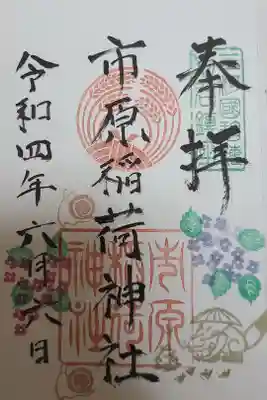 奉拝
市原稲荷神社
令和四年六月六日
市原稲荷神社